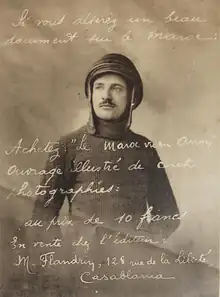 Si vous désirez un beau
document sur le Maroc:
Achetez: "le Maroc vu en Avion
Ouvrage illustré de
photographies:
au prix de 10 francs
En vente chez l'éditeur:
M. Flandrin, 128 rue de la liberté
Casablanca